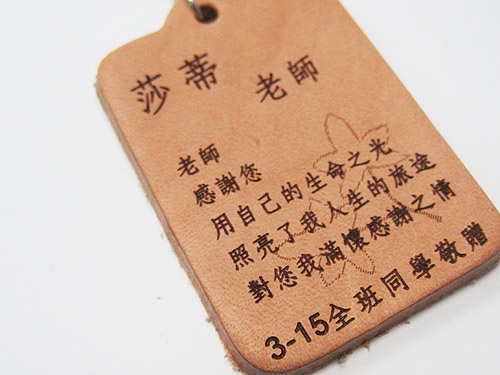 莎蒂 老師
老師
感謝您
用自己的生命之光
照亮了我人生的旅途
對您我滿懷感謝之情
3-15全班同學敬贈